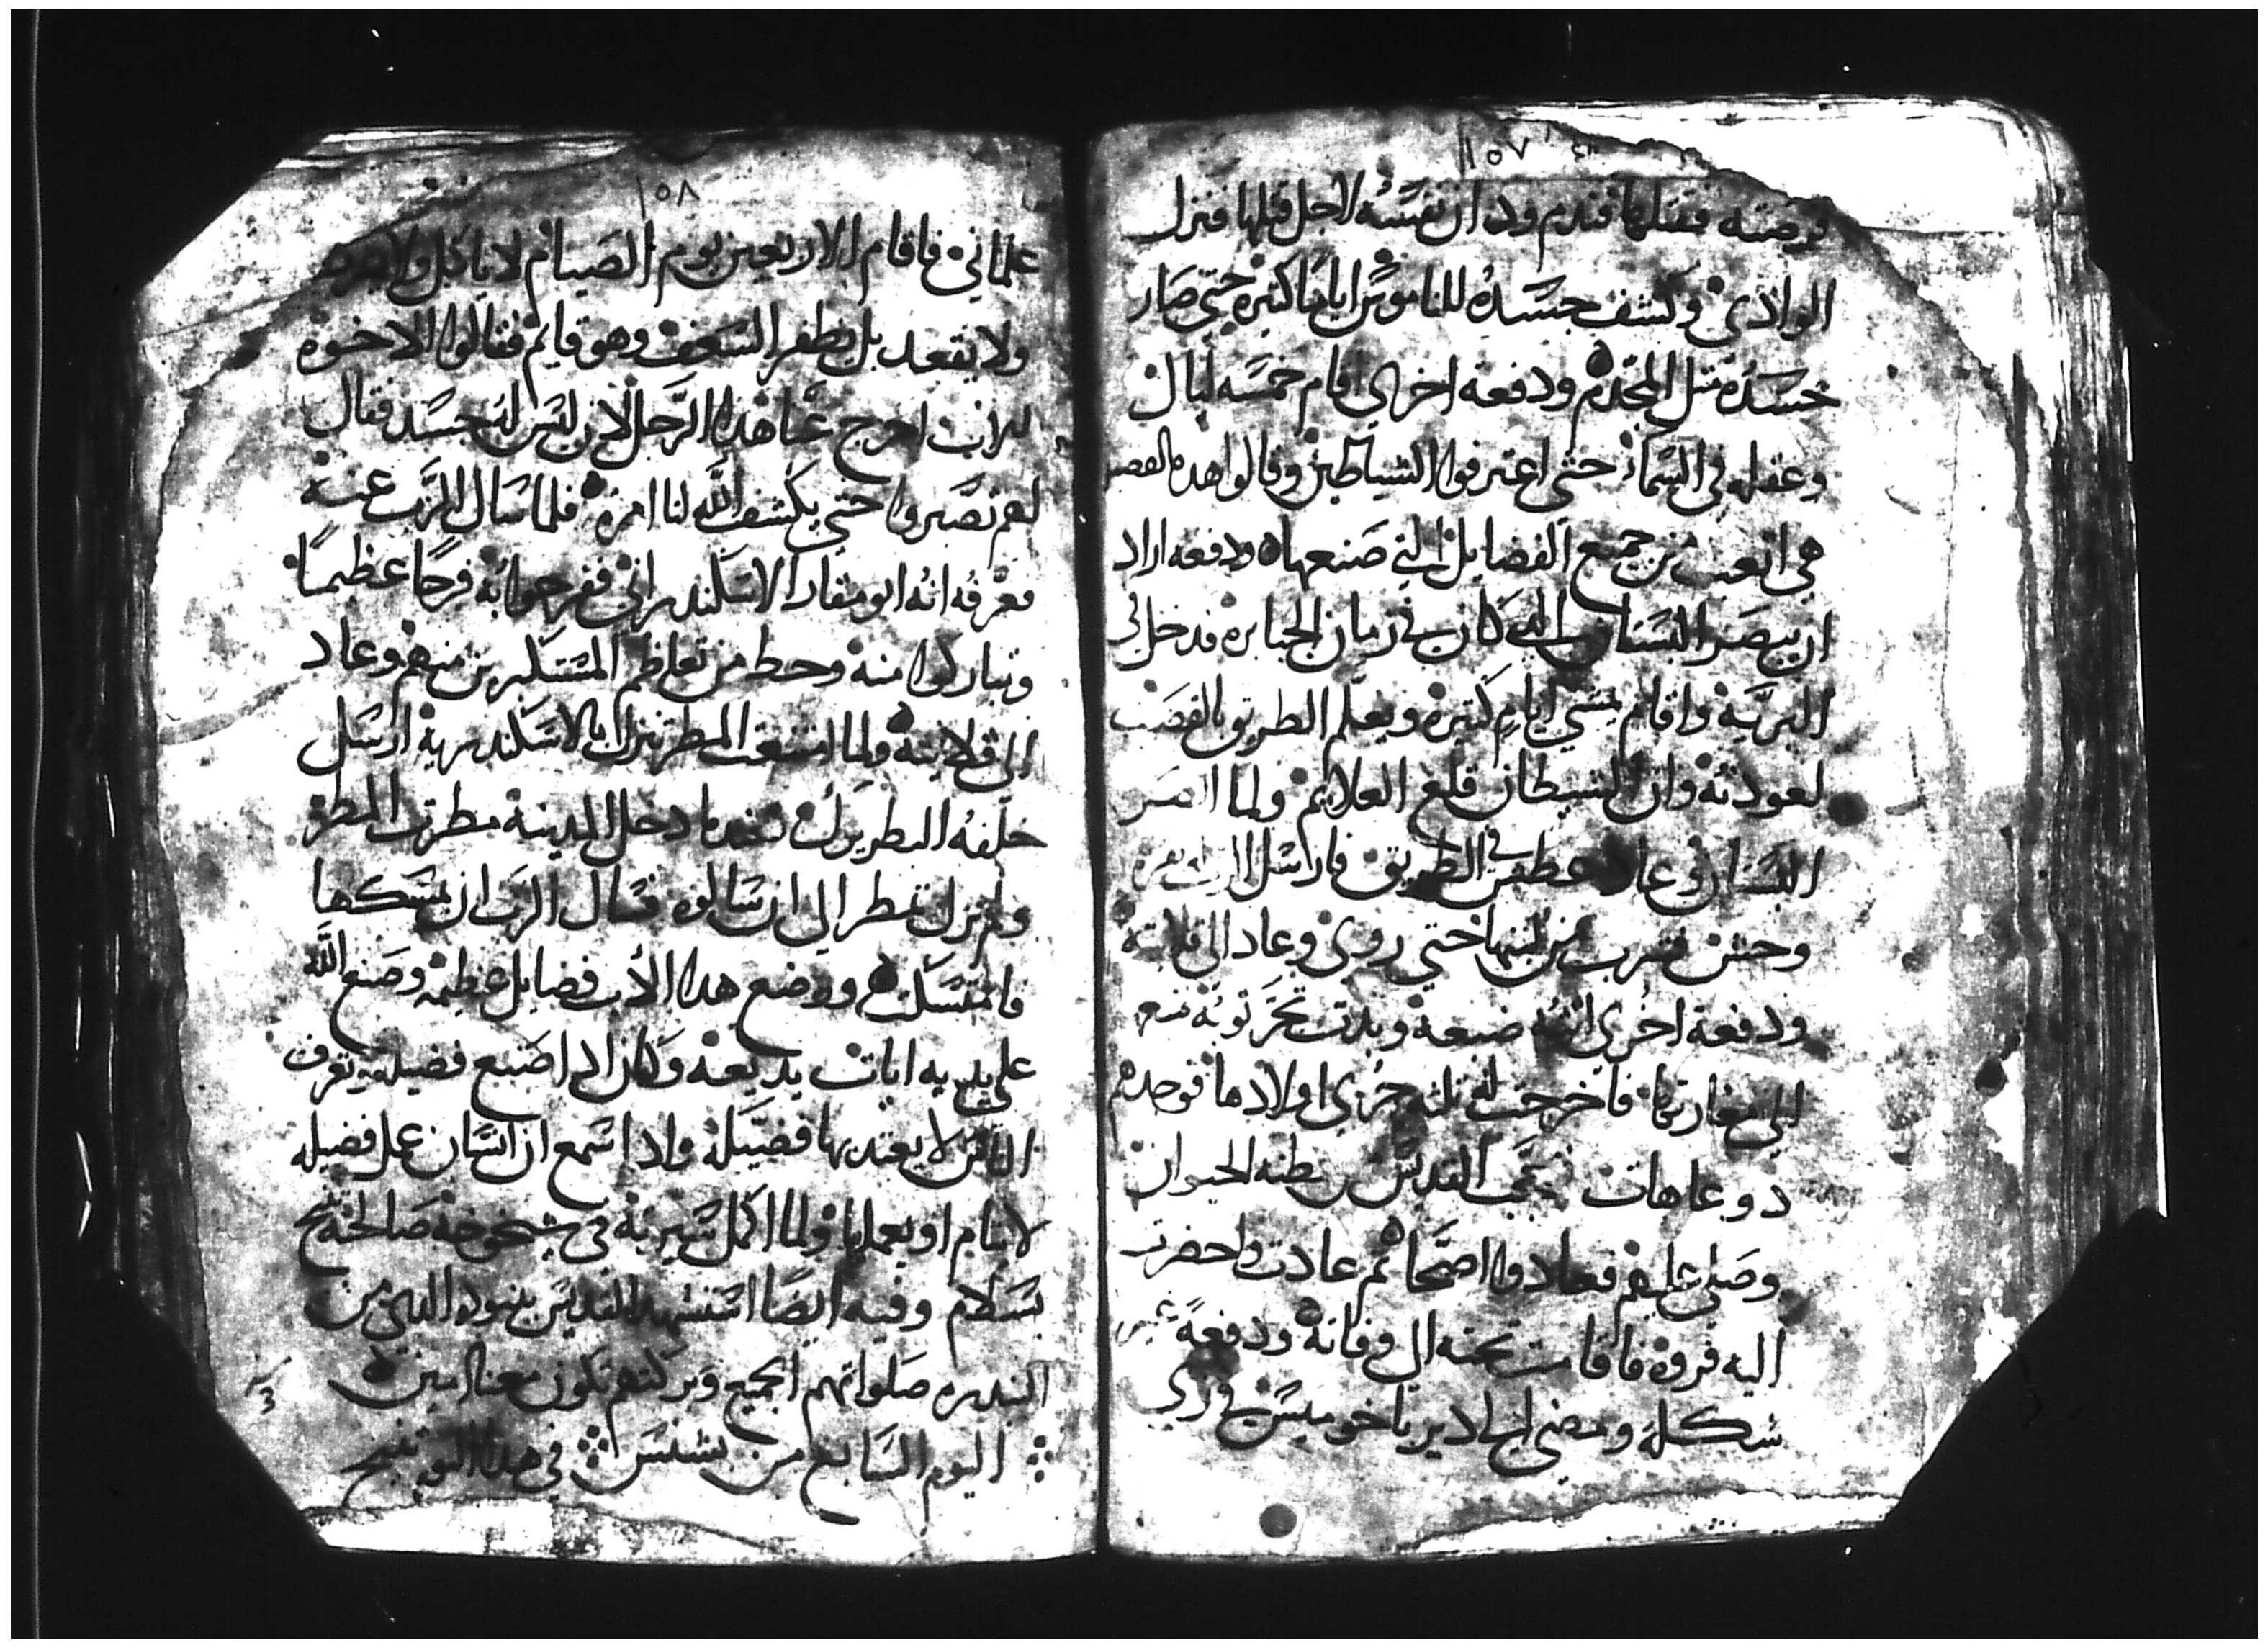 ١٥٧
قرصته فقتلها فندم ودان نفسه لاجل قتلها فنزل
الوادي وكشف جسده للناموس اياما كتيره حتى صار
جسده متل المجدم ودفعه اخري اقام خمسه ليال
وعقله في السما حتى اعترفوا الشياطين وقالوا هده
هي اتعب من جميع الفضايل التي صنعها ودفعه اراد
ان يبصر البستان الدي كان في زمان الجبابره فدخل الى
البريه واقام يمشي ايام كتيره ويعلم الطريق بالقصب
لعودته وان الشيطان قلع العلايم ولما ابصر
البستان وعاد عطش في الطريق فارسل الرب بقره
وحش فشرب من لبنها حتي روي وعاد الى قلايته
ودفعة اخري اتته ضبعة وبدت تجر توبه فتبع
الى مغارتها فاخرجت له تلته جري اولادها فوجدهم
دو عاهات فتعجب القديس من فطنه الحيوان
وصلى عليهم فعادوا اصحا تم عادت واحضرت
اليه فروه فاقامت تحته الى وفاته ودفعة غير
شكله ومضى الى دير باخوميس في زي
١٥٨
علماني فاقام الاربعين يوم الصيام لا ياكل ولا يشرب
ولا يقعد بل يظفر السعف وهو قايم فقالوا الاخوه
للاب اخرج عنا هدا الرجل لان ليس له جسد فقال
لهم تصبروا حتي يكشف الله لنا امره فلما سال الرب عنه
فعرفه انه ابو مقار الاسكندراني ففرحوا به فرحا عظيما
وتباركوا منه وحط من تعاظم المستكبرين منهم وعاد
الى قلايته ولما امتنعت المطر تنزل بالاسكندرية ارسل
خلفه البطريرك فعندما دخل المدينة مطرت المطر
ولم تزل تمطر الي ان سالوه فسال الرب ان يمسكها
فامتسكت ووضع هدا الاب فضايل عظيمه وصنع الله
علي يديه ايات بديعه وكان ادا صنع فضيله يعرف
الناس لا يعتد بها فضيله وادا سمع ان انسان عمل فضيله
لا ينام او يعملها ولما اكمل سيرته في شيخوخه صالحة تنيح
بسلام وفيه ايضا استشهد القديس بنوده الدي من
البندره صلواتهم الجميع وبركتهم تكون معنا امين
اليوم السابع من بشنس في هدا اليوم تنيح